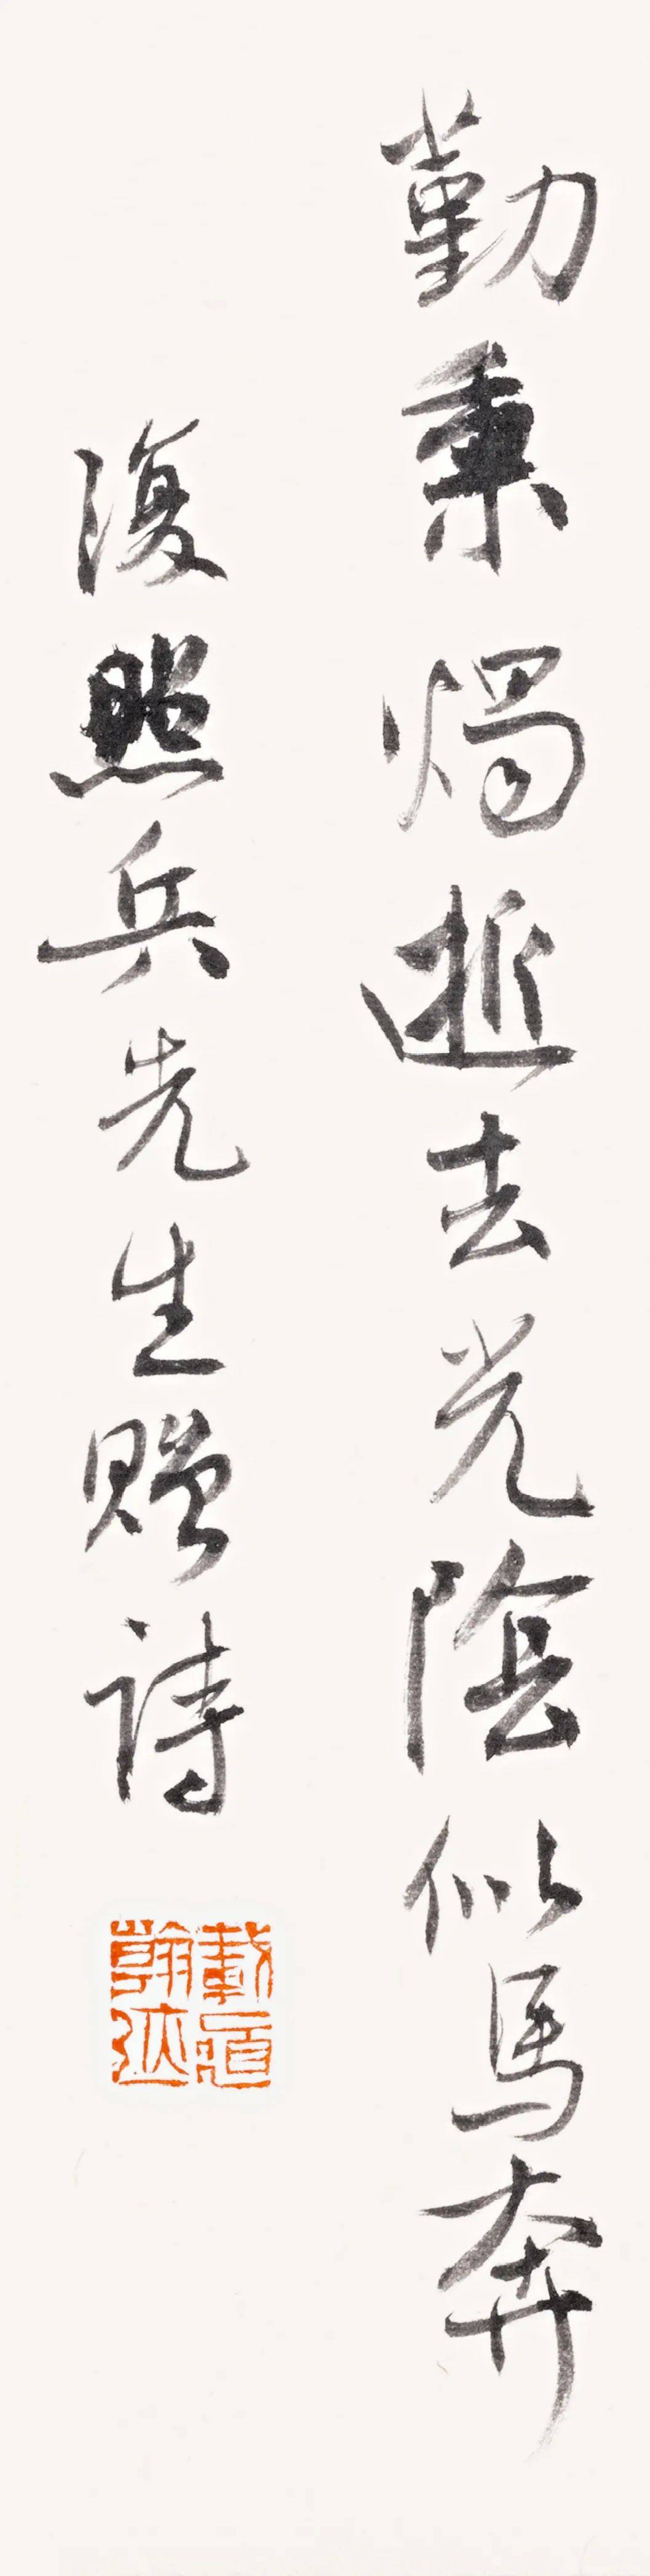 勤秉燭逝去光陰似馬奔
復照兵先生贈詩